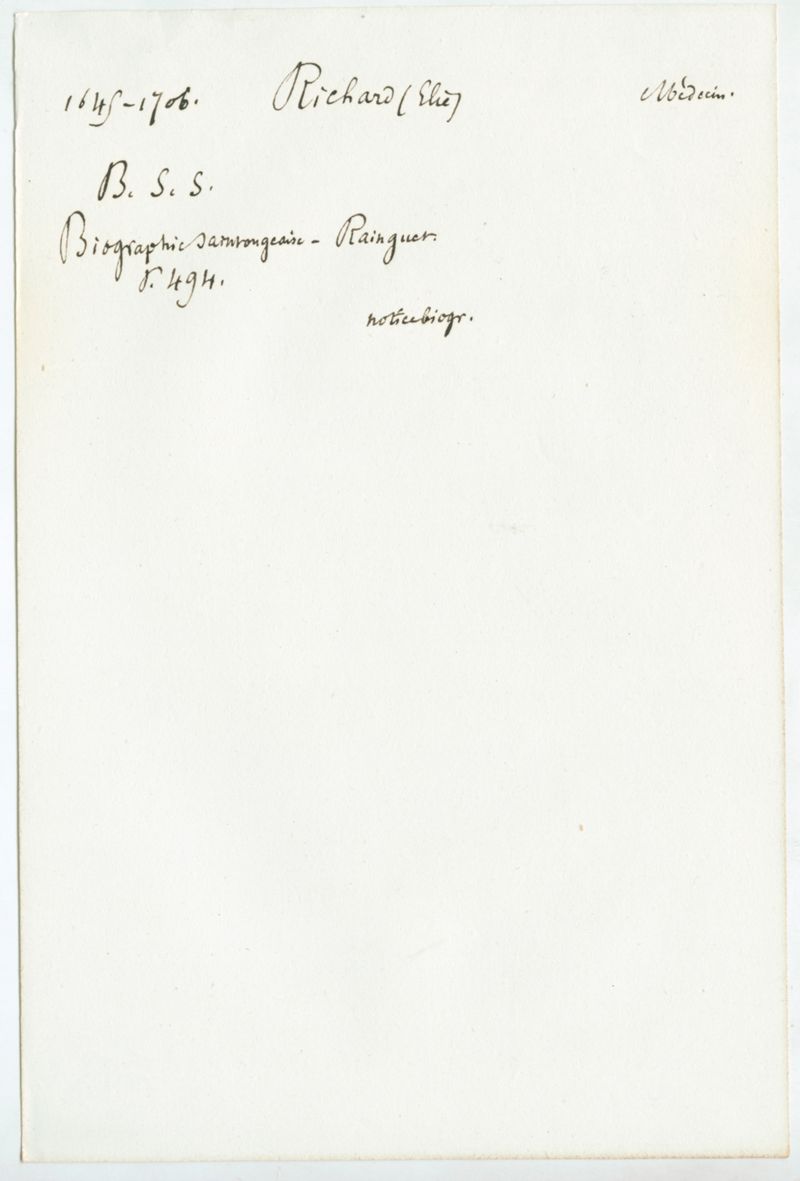 1645-1706. Richard (Elie) Médecin.
B. S. S.
Biographie Saintongeaise - Rainguet.
P. 494.
notice biogr.